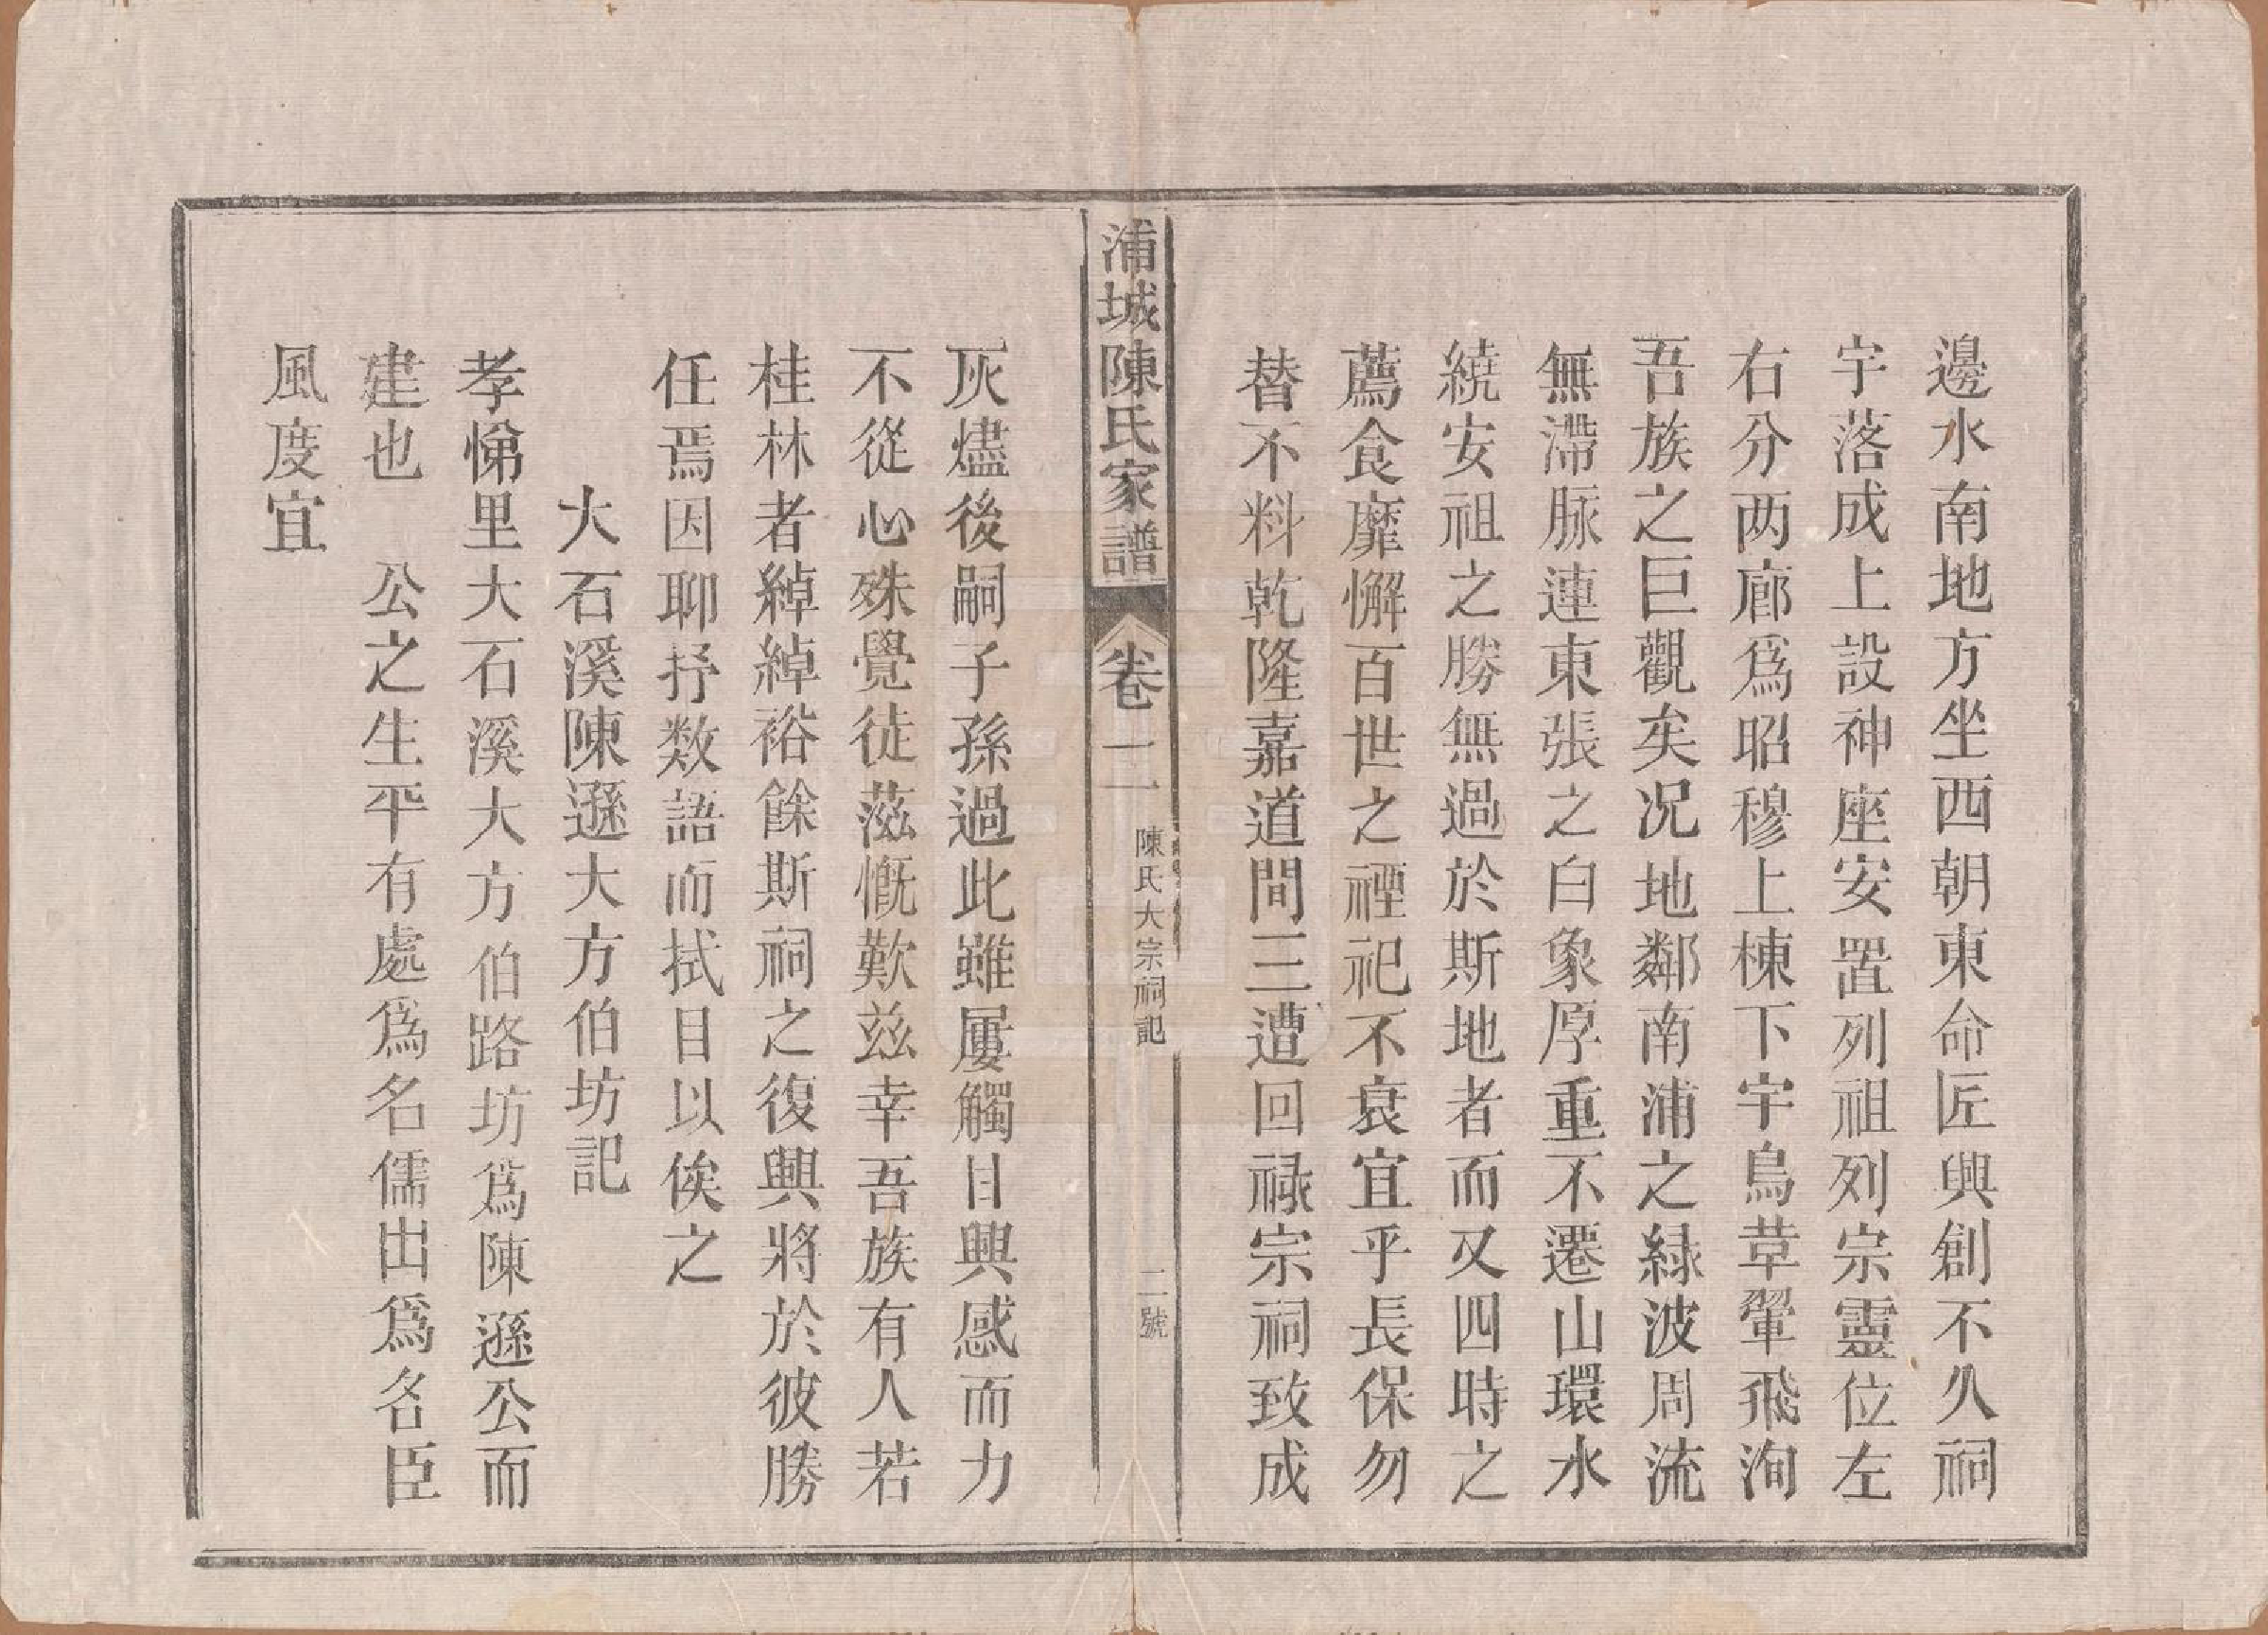 邊水南地方坐西朝東命匠興創不久祠
宇落成上設神座安置列祖列宗靈位左
右分两廊爲昭穆上棟下宇鳥革翬飛洵
吾族之巨觀矣况地鄰南浦之緑波周流
無滯脉連東張之白象厚重不遷山環水
繞安祖之勝無過於斯地者而又四時之
薦食靡懈百世之禋祀不衰宜乎長保勿
替不料乾隆嘉道間三遭回禄宗祠致成
浦城陳氏家譜
卷二
陳氏大宗祠記
二號
灰燼後嗣子孫過此雖屢觸目興感而力
不從心殊覺徒滋慨歎兹幸吾族有人若
桂林者綽綽裕餘斯祠之復興將於彼勝
任焉因聊抒数語而拭目以俟之
大石溪陳遜大方伯坊記
孝悌里大石溪大方伯路坊爲陳遜公而
建也　公之生平有處爲名儒出爲名臣
風度宜